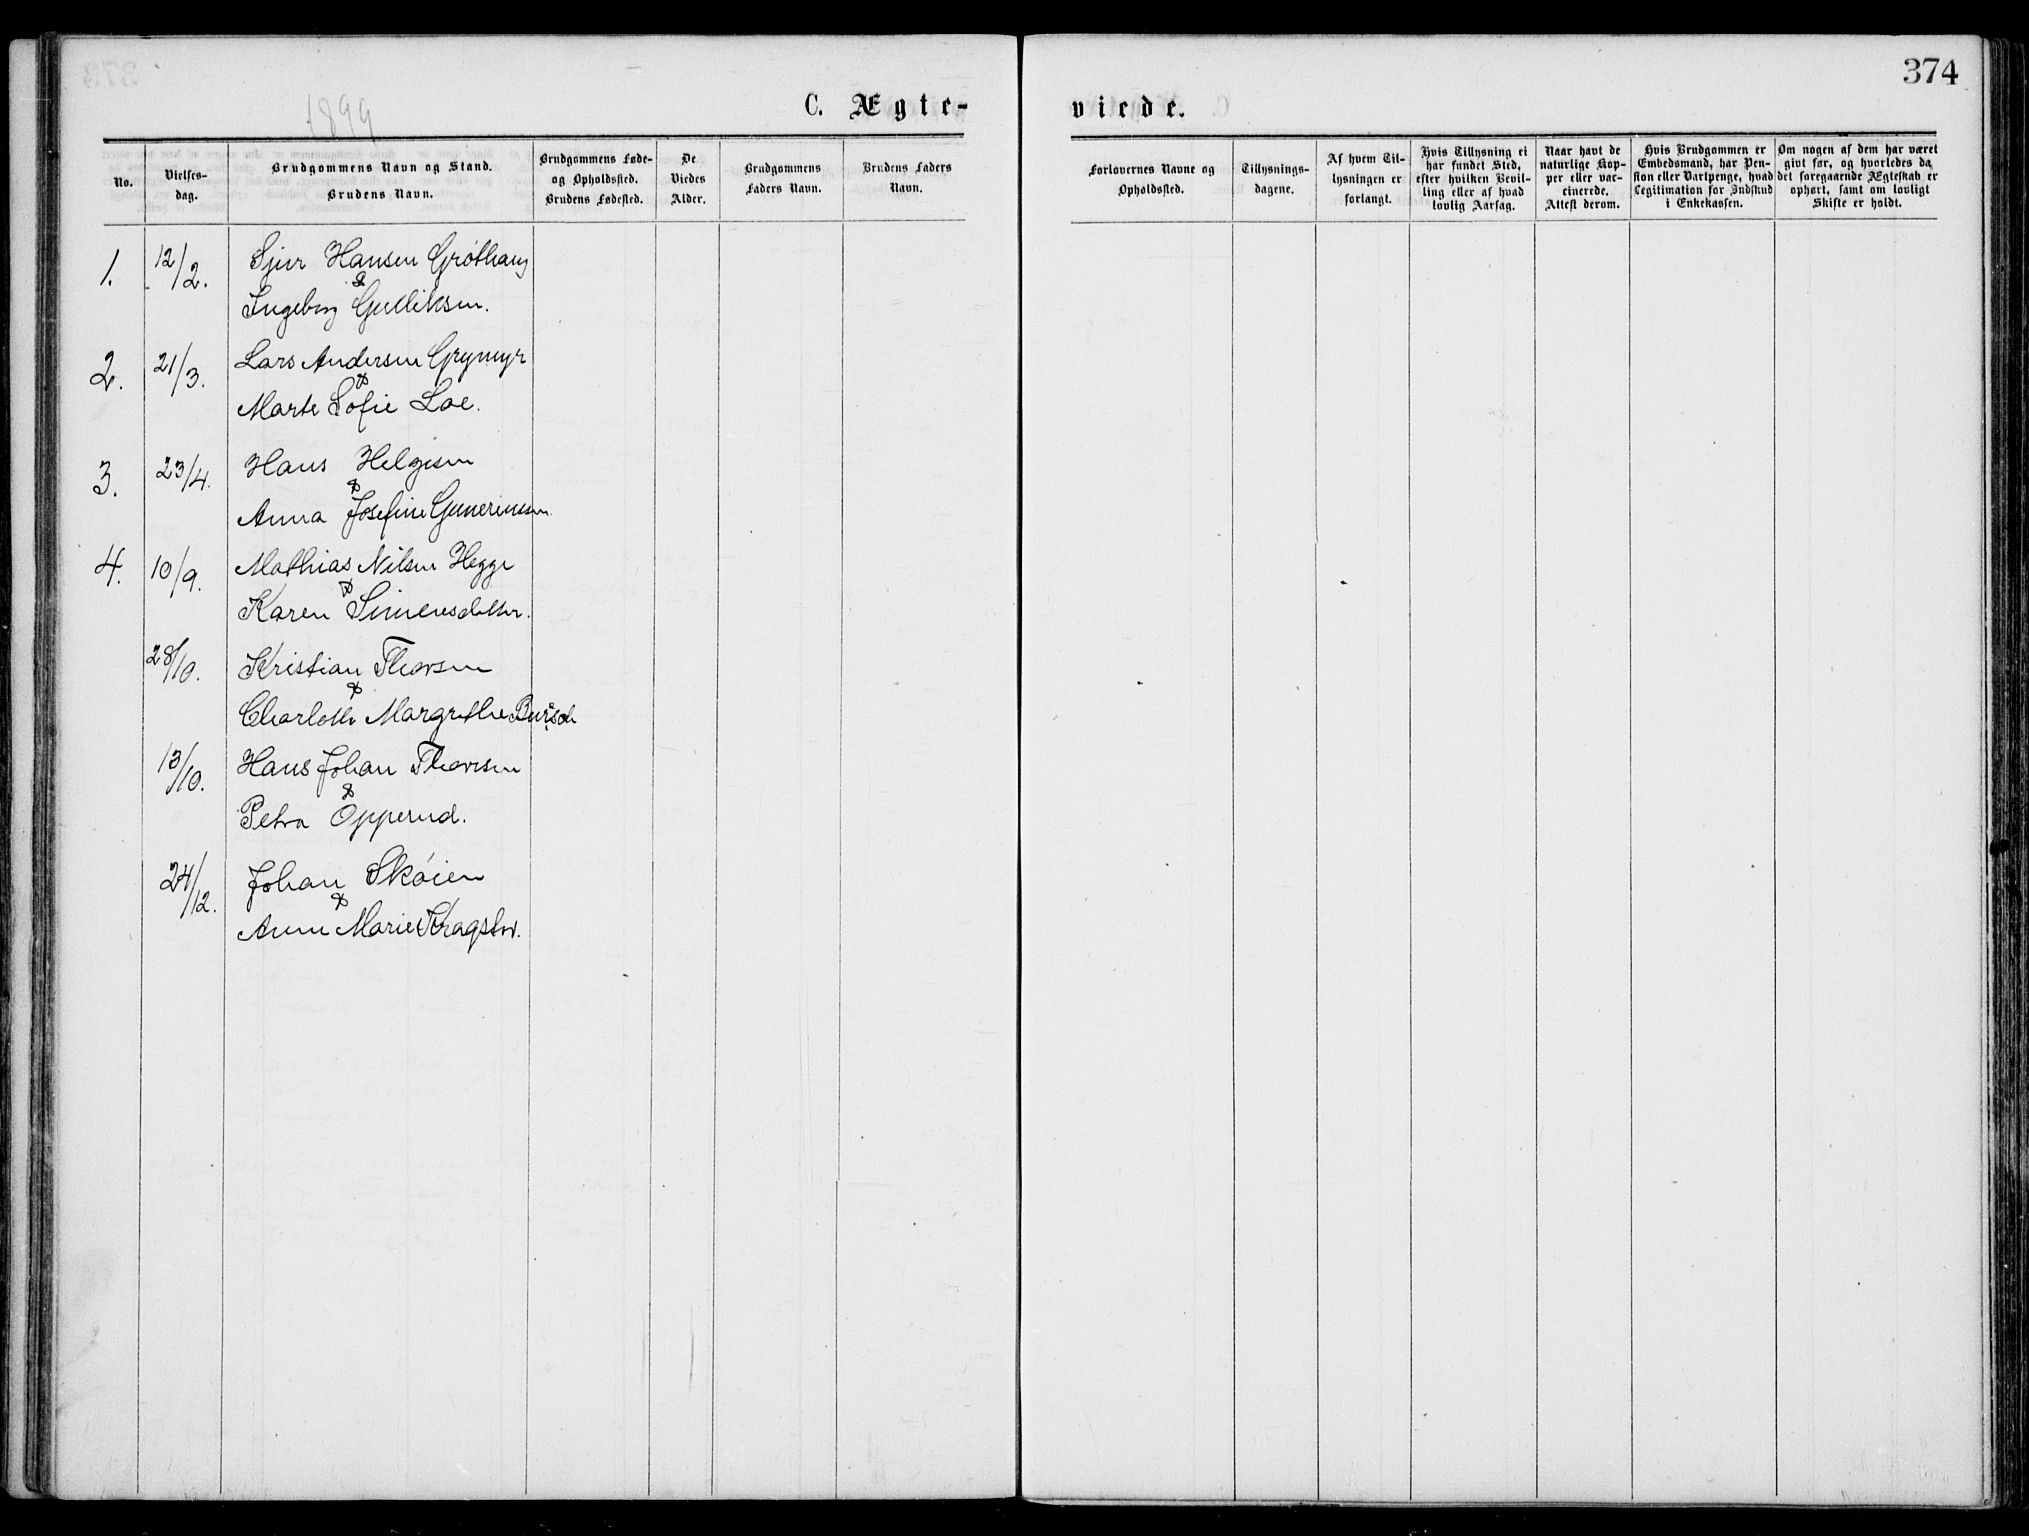 374
1899
C. Ægte-
viede.
No.
Vielses-
dag.
Brudgommens Navn og Stand.
Brudens Navn.
Brudgommens Føde-
og Opholdssted.
Brudens Fødested.
De
Viedes
Alder.
Brudgommens
Faders Navn.
Brudens Faders
Navn.
Forlovernes Navne og
Opholdssted.
Tillysnings-
dagene.
Af hvem Til-
lysningen er
forlangt.
Hvis Tillysning ei
har fundet Sted,
efter hvilken Bevil-
ling eller af hvad
lovlig Aarsag.
Naar havt de
naturlige Kop-
per eller vac-
cinerede.
Attest derom.
Hvis Brudgommen er
Embedsmand, har Pen-
sion eller Vartpenge, hvad
Legitimation for Indskud
i Enkekassen.
Om nogen af dem har været
givt før, og hvorledes da
det foregaaende Ægteskab er
ophørt, samt om lovligt
Skifte er holdt.
1. 12/2. Sjur Hansen Gróthaug
&
Ingeborg Gulliksen.
2. 21/3. Lars Andersen Grymyr
&
Marte Sofie Loe.
3. 23/4. Hans Helgesen
&
Anna Josefine Guneriussen
4. 10/9. Mathias Nilsen Hegge
&
Karen Simensdatter.
28/10. Kristian Thorsen
&
Charlotte Margrethe
13/10. Hans Johan Thoresen
&
Petra Opperud.
24/12. Johan Skóien
&
Anne Marie